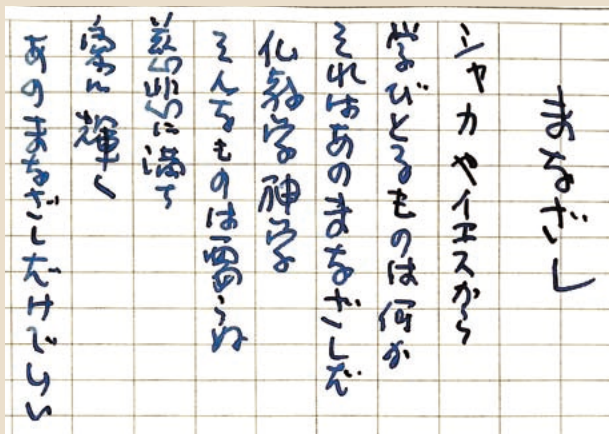 まなざし
シャカやイエスから
学びとるものは何か
それはあのまなざしだ
仏教学神学
そんなものは要らぬ
慈悲に満ち
常に輝く
あのまなざしだけでいい